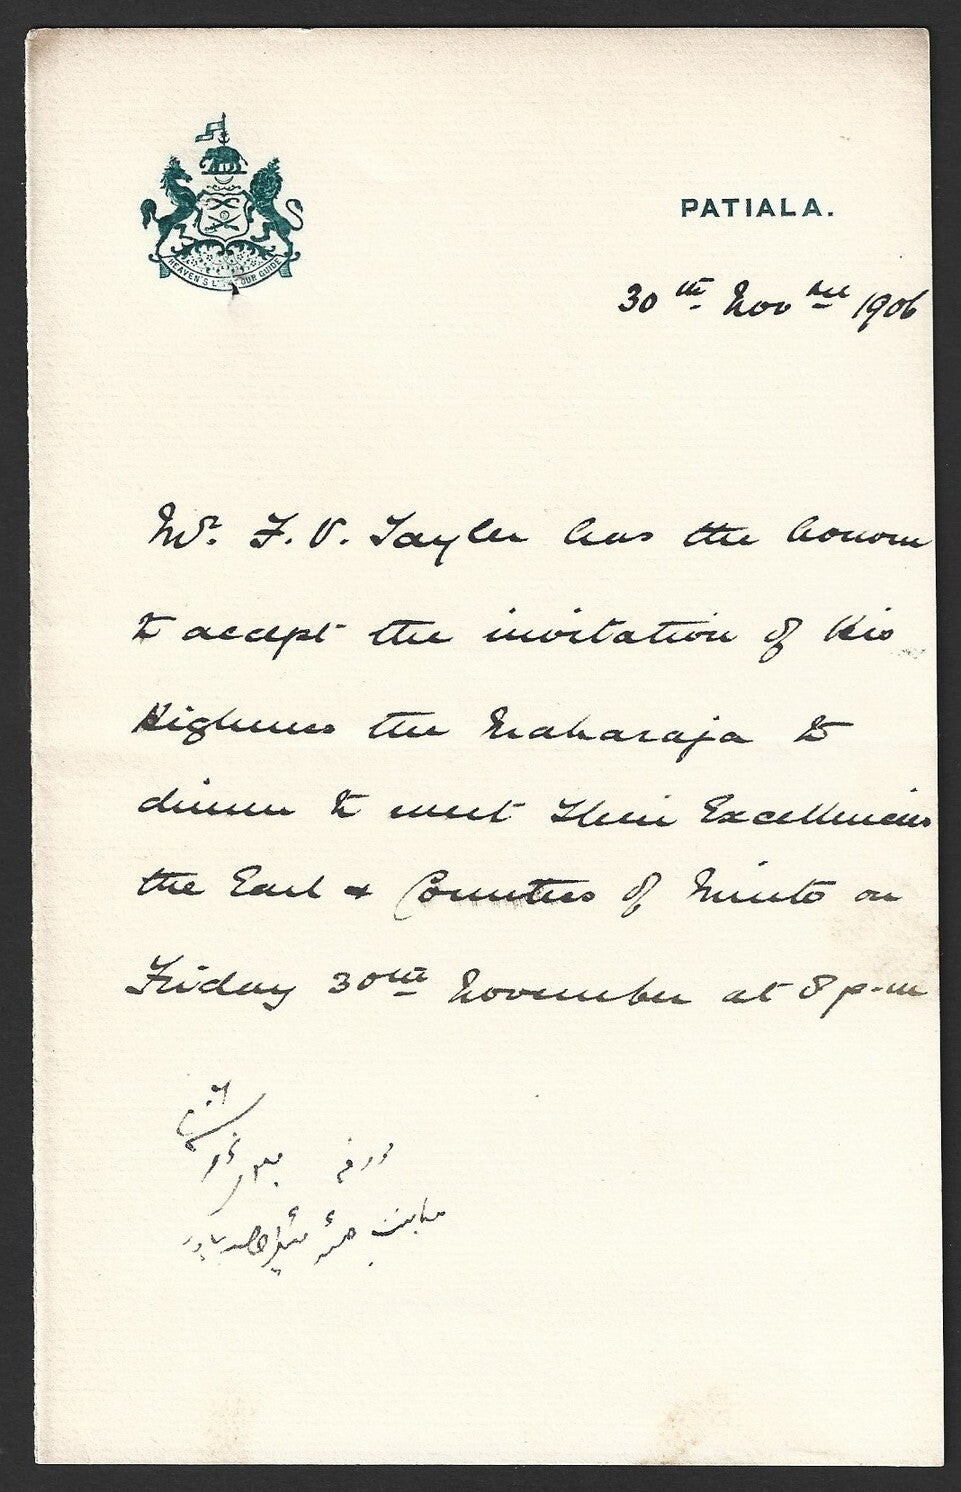 HEAVEN'S L OUR GUIDE
PATIALA.
30th Nov ber 1906
Mr. F. V. Tayler has the honour
to accept the invitation of His
Highness the Maharaja to
dinner to meet Their Excellencies
the Earl & Countess of Minto on
Friday 30th November at 8 p.m